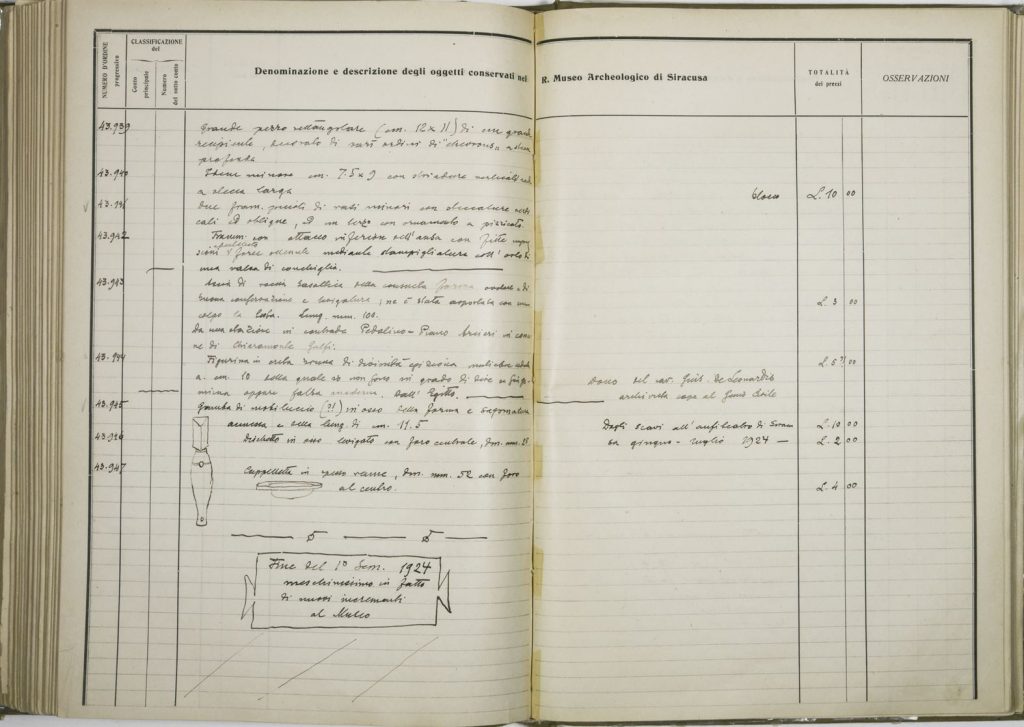 NUMERO D'ORDINE progressivo
CLASSIFICAZIONE del
Conto principale
Numero del sotto conto
Denominazione e descrizione degli oggetti conservati nel R. Museo Archeologico di Siracusa
TOTALITÀ dei prezzi
OSSERVAZIONI
43.939 Grande pezzo rettangolare (cm. 12 x 11) di un grande
recipiente, decorato di vari ordini di
profonda
43.940 Idem minore cm. 7.5 x 9 con
a stecca larga
Due fram. piccoli di vasi minori con
cali ed oblique, ed un terzo con ornamento a pizzicato.
L. 10 00
43.942 Framm. con attacco inferiore dell'ansa con fitte
mediante stampigliatura coll' orlo di
una valva di conchiglia.
43.943 di roccia basaltica della consueta forma
buona conservazione e levigatura; ne è stata asportata con un
colpo la Lung. mm. 100.
L. 3 00
Da una stazione in contrada Pedalino - Piano Arcieri in comu
ne di Chiaramonte Gulfi.
43.944 Figurina in creta di divinità
a. cm. 10 della quale io non sono in grado di dire se
mina oppure falsa moderna. Dall' Egitto.
L. 5
Dono del cav. Gius. De Leonardis
archivista capo al Genio Civile
43.945 Gamba di mobiluccio (?!) in osso della forma e sagomatura
annessa e della lung. di cm. 11.5
Dagli scavi all'anfiteatro di Siracu
L. 10 00
Dischetto in osso levigato con foro centrale, dm. mm.
sa giugno - luglio 1924 —
L. 2 00
43.947 Cuppelletta in spesso rame, dm. mm. 52 con foro
al centro.
L. 4 00
Fine del 1° Sem. 1924
meschinissimo in fatto
di nuovi incrementi
al Museo